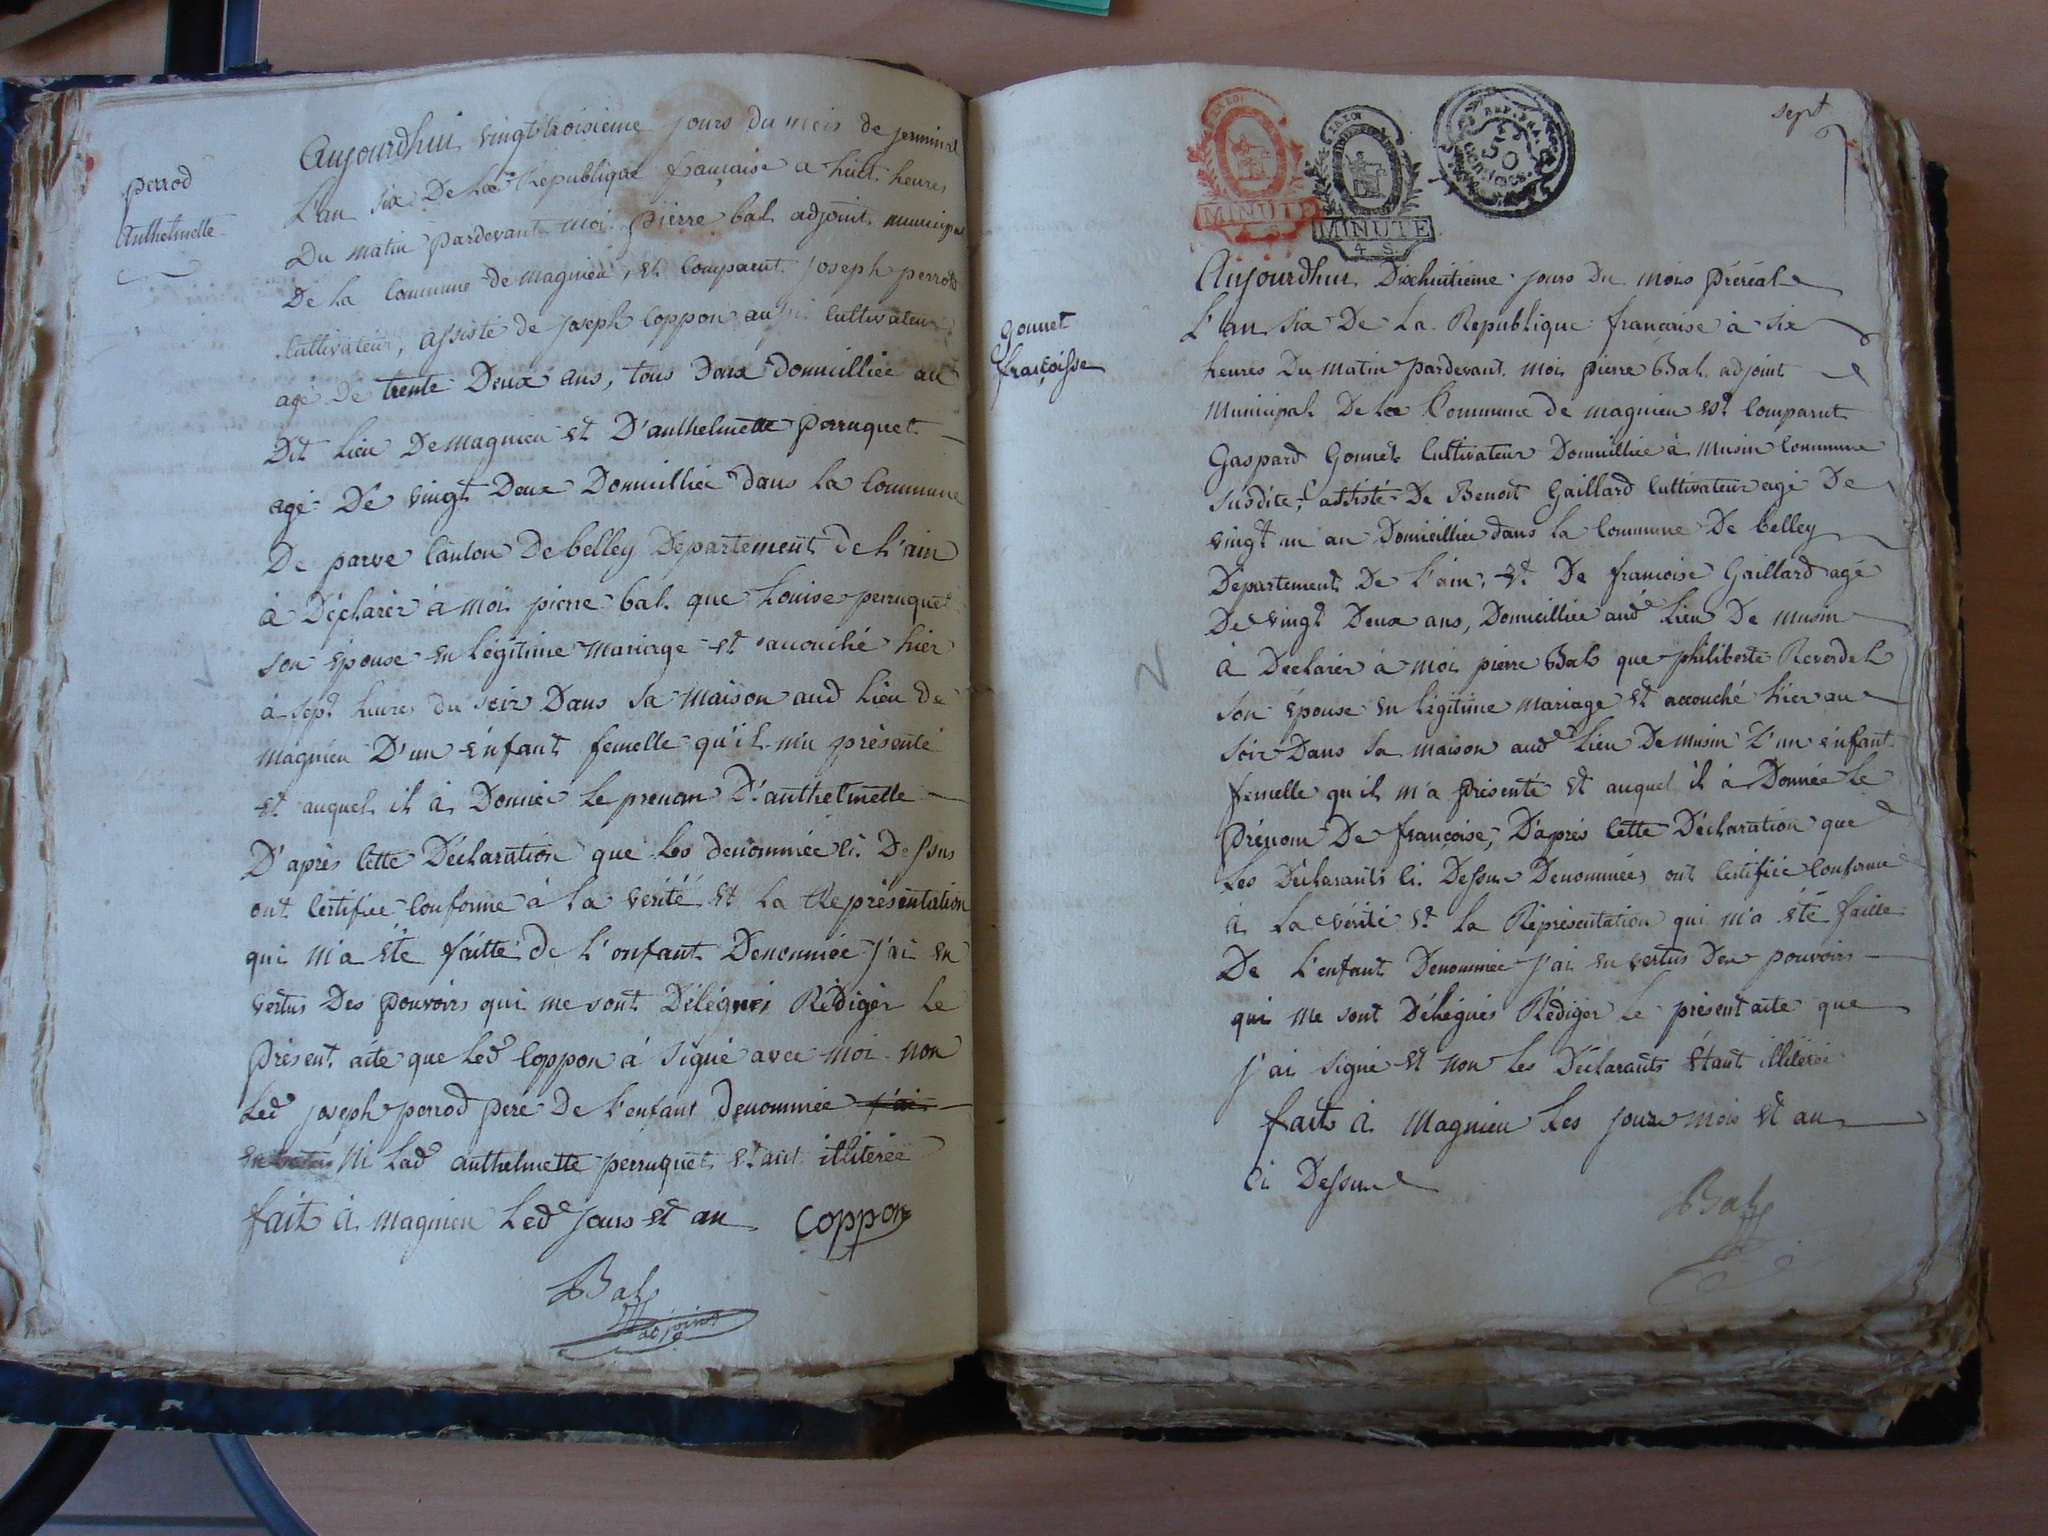 perrod
Anthelmette
Aujourdhui vingt troisieme jours du mois de jerminal
L'an six De La Republique française a huit heures
Du matin pardevant moi pierre bal adjoint municipal
De la Commune de magnieu, et Comparut joseph perrod
Cultivateur, assisté de joseph Coppon aussi Cultivateur
agé De trente Deux ans, tous Deux Domicilliée au
Dit Lieu De magnieu et D'anthelmette perruquet
agé De vingt Deux Domicilliée dans la Commune
De parve Canton De belley Departement de L'ain
à Déclarér à moi pierre bal que Louise perruquet
son épouse en légitime mariage et accouché hier
à sept heures du soir Dans sa maison aud Lieu de
magnieu D'un énfant femelle qu'il m'a présenté
et auquel il à Donnée Le prenom D'anthelmette
D'après Cette Déclaration que Les dénommée Ci Dessus
ont Certifiée Conforme à la vérité et la Représentation
qui m'a été faitte de L'enfant Dénommée j'ai en
vertus Des pouvoirs qui me sont Délégués Rédigér Le
présent acte que Led Coppon à signé avec moi non
Led joseph perrod père De L'enfant denommée j'ai
en vertus ni Lad anthelmette perruquet étant illitérée
fait à magnieu Led jours et an
Coppon
Bal
adjoint
sept
7
LA LOI
MINUTE
4 S.
LA LOI
MINUTE
4 S.
REP. FRA.
50
CENTIMES
gonnet
françoisse
Aujourdhui Dixhuitième jours Du mois préréal
L'an six De La Republique françaisse à six
heures Du matin pardevant moi pierre Bal adjoint
Municipal De La Commune de magnieu et Comparut
Gaspard Gonnet Cultivateur Domicilliée à musin Commune
susdite, assisté De Benoit Gaillard Cultivateur agé De
vingt un an Domicilliée dans la Commune De belley
Département De L'ain, et De françoise Gaillard agé
De vingt Deux ans, Domicilliée aud Lieu De musin
à Déclarér à moi pierre Bal que philiberte Reverdel
son épouse en légitime mariage et accouché hier au
soir Dans sa maison aud Lieu De musin D'un énfant
femelle qu'il m'a présenté et auquel il à Donnée Le
prénom De françoise, D'après Cette Déclaration que
Les Déclarants Ci Dessus Dénommées ont Certifiée Conforme
à La vérité et la Représentation qui m'a été faitte
De L'enfant Dénommée j'ai en vertus Des pouvoirs
qui me sont Délégués Rédigér Le présent acte que
j'ai signé et non Les Déclarants étant illitérée
fait à Magnieu Les jours mois et an
Ci Dessus
Bal